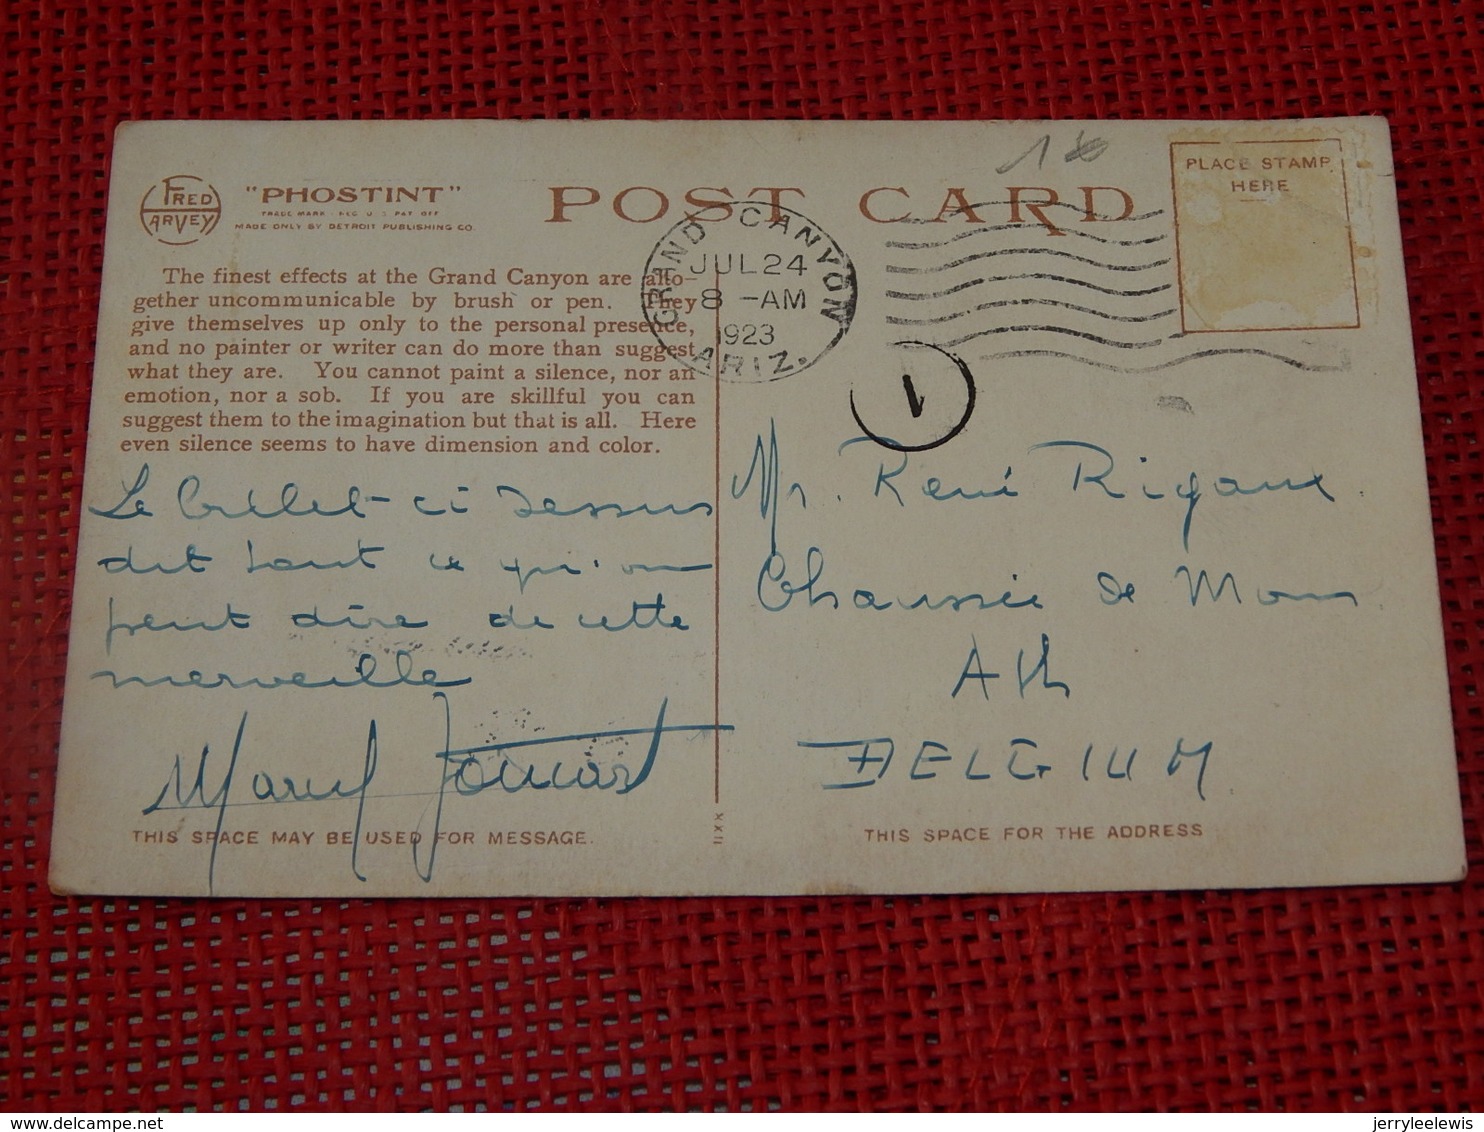 FRED HARVEY
"PHOSTINT"
TRADE MARK REG U S PAT OFF
MADE ONLY BY DETROIT PUBLISHING CO.
POST CARD
PLACE STAMP
HERE
GRAND CANYON
JUL 24
8 -AM
1923
ARIZ.
1
The finest effects at the Grand Canyon are alto-
gether uncommunicable by brush or pen. They
give themselves up only to the personal presence,
and no painter or writer can do more than suggest
what they are. You cannot paint a silence, nor an
emotion, nor a sob. If you are skillful you can
suggest them to the imagination but that is all. Here
even silence seems to have dimension and color.
Le ci dessus
dit tout ce qu'on
peut dire de cette
merveille
Marcel
THIS SPACE MAY BE USED FOR MESSAGE.
XXII
Mr. René Rigaux
Chaussée de Mons
Ath
BELGIUM
THIS SPACE FOR THE ADDRESS
delcampe.net
jerryleelewis